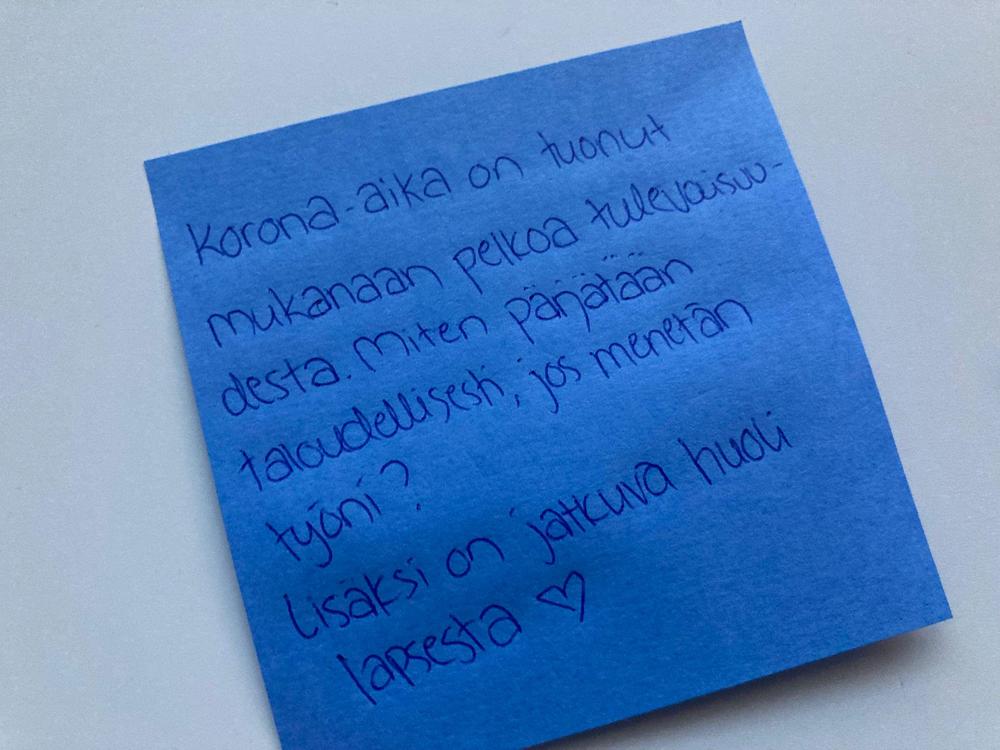 Korona-aika on tuonut
mukanaan pelkoa tulevaisuu-
desta. Miten pärjätään
taloudellisesti, jos menetän
työni?
Lisäksi on jatkuva huoli
lapsesta ♡